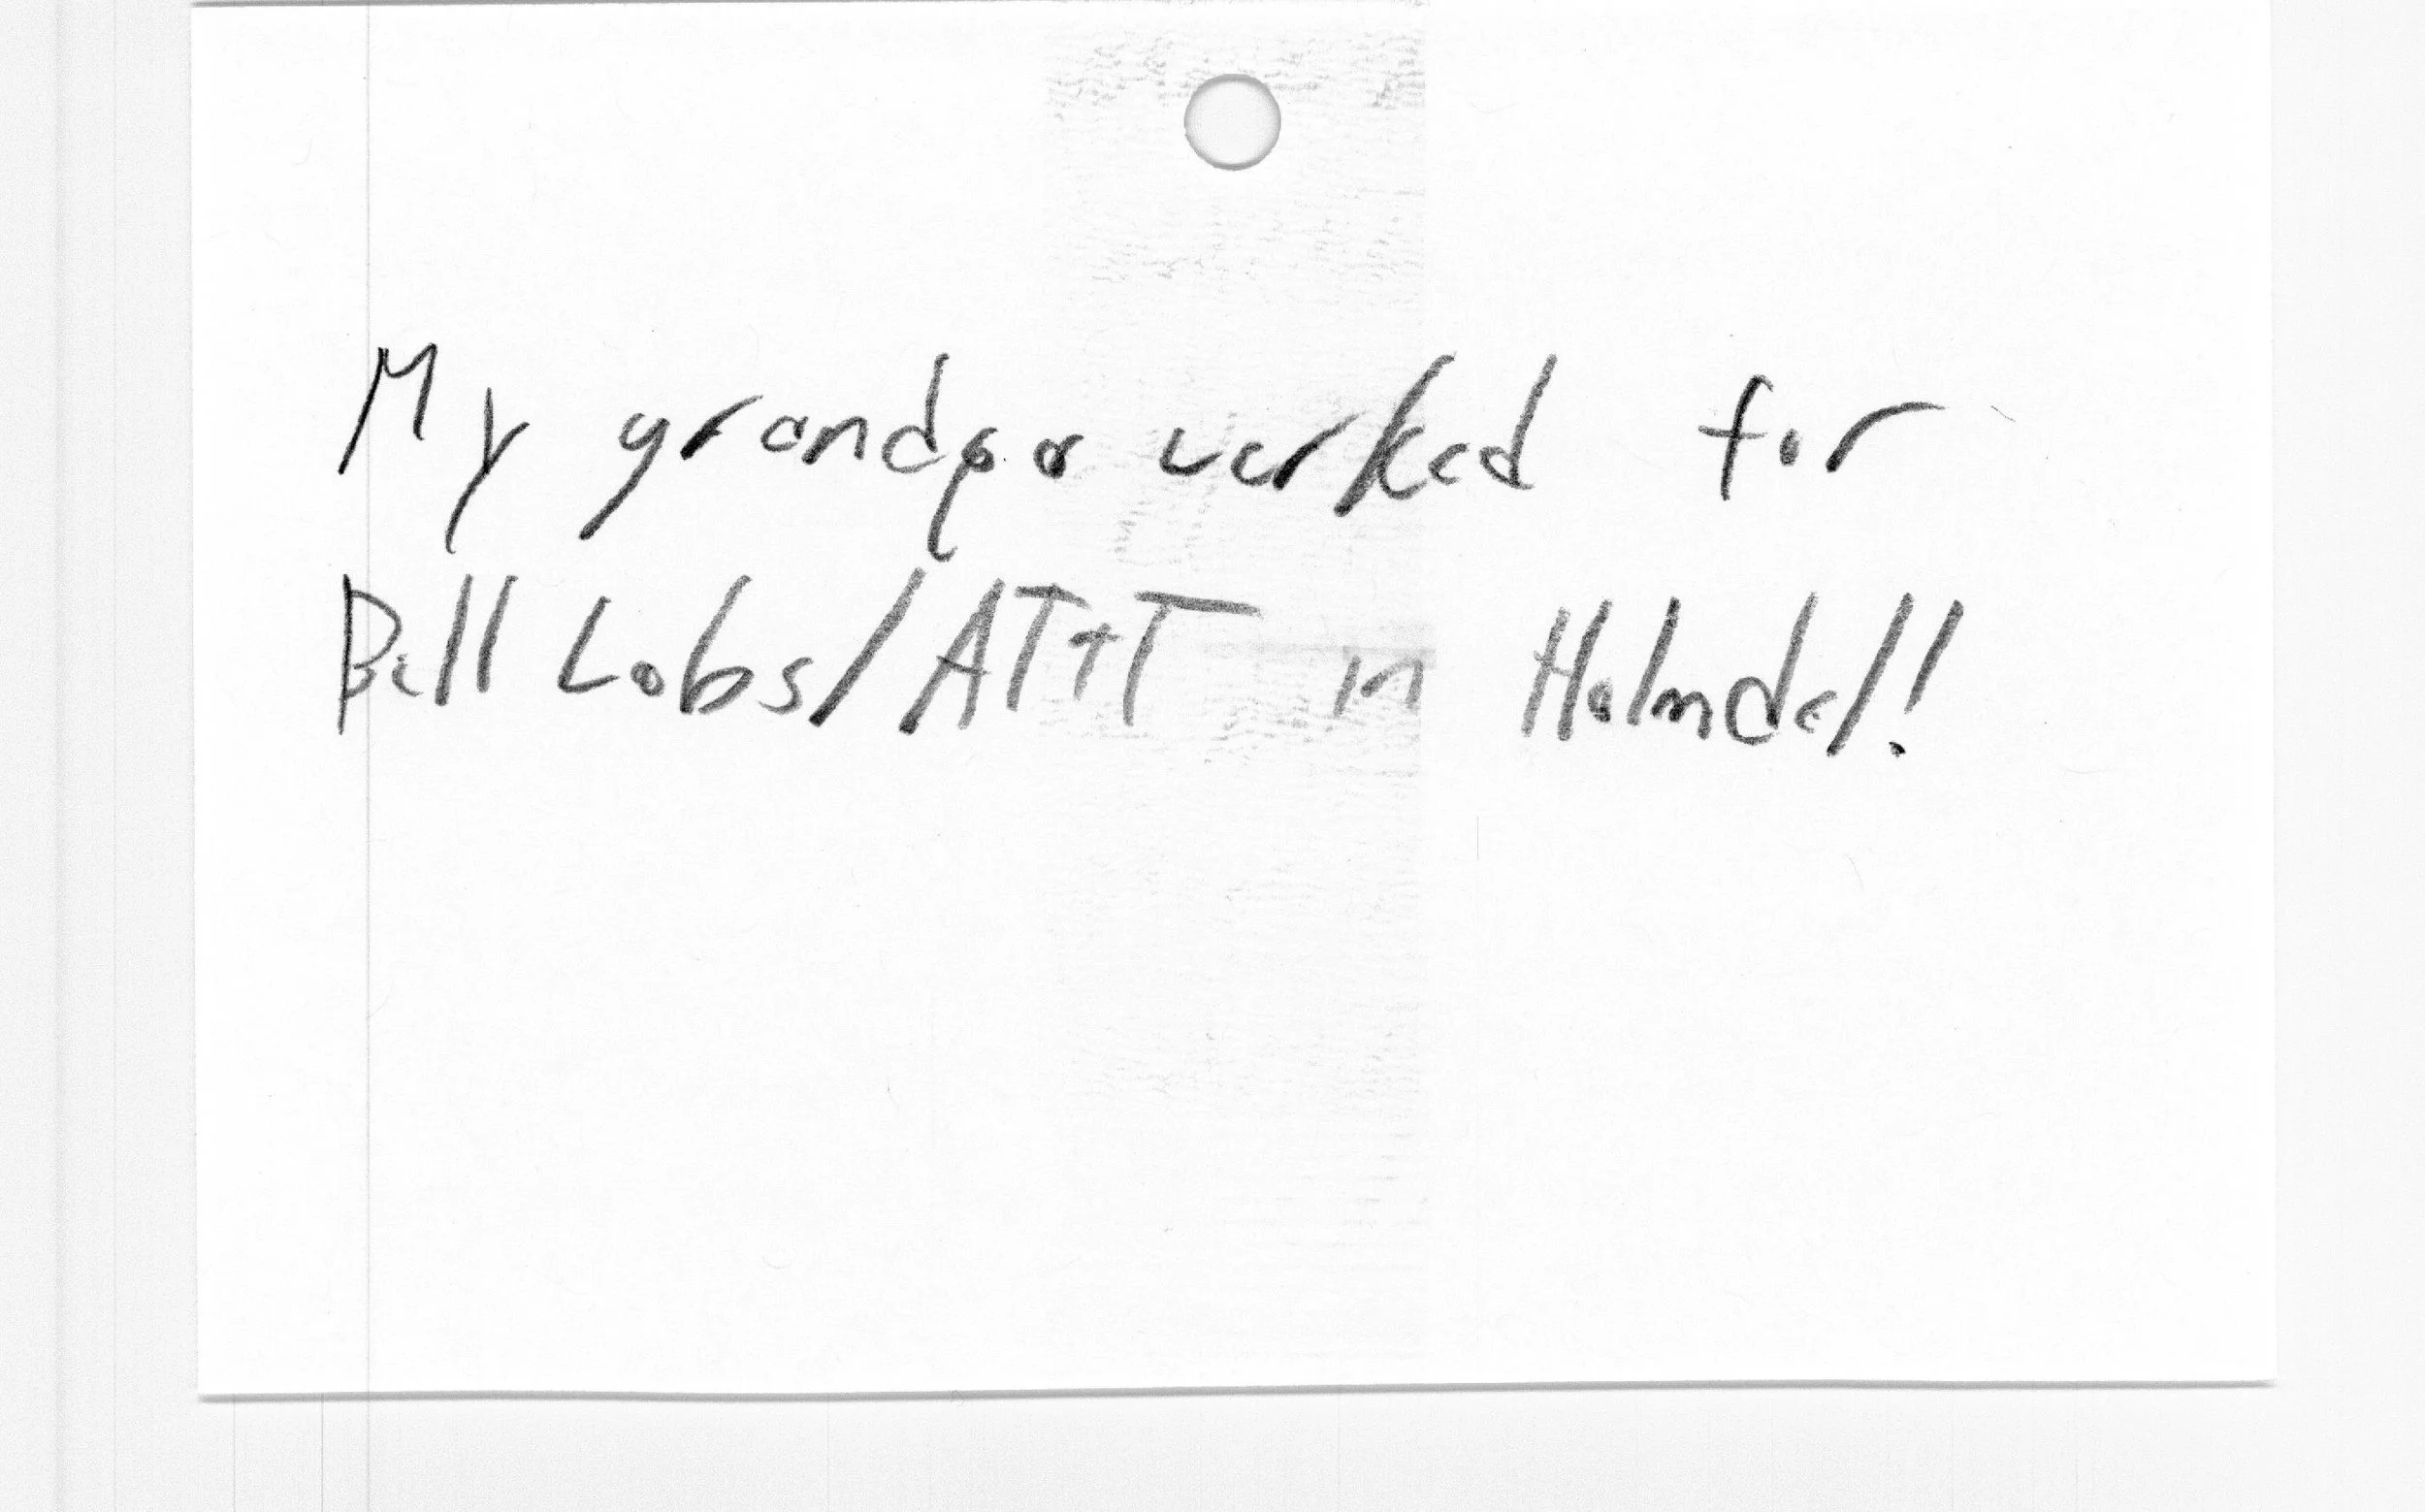 My grandpa worked for
Bell Labs/AT+T in Holmdel!